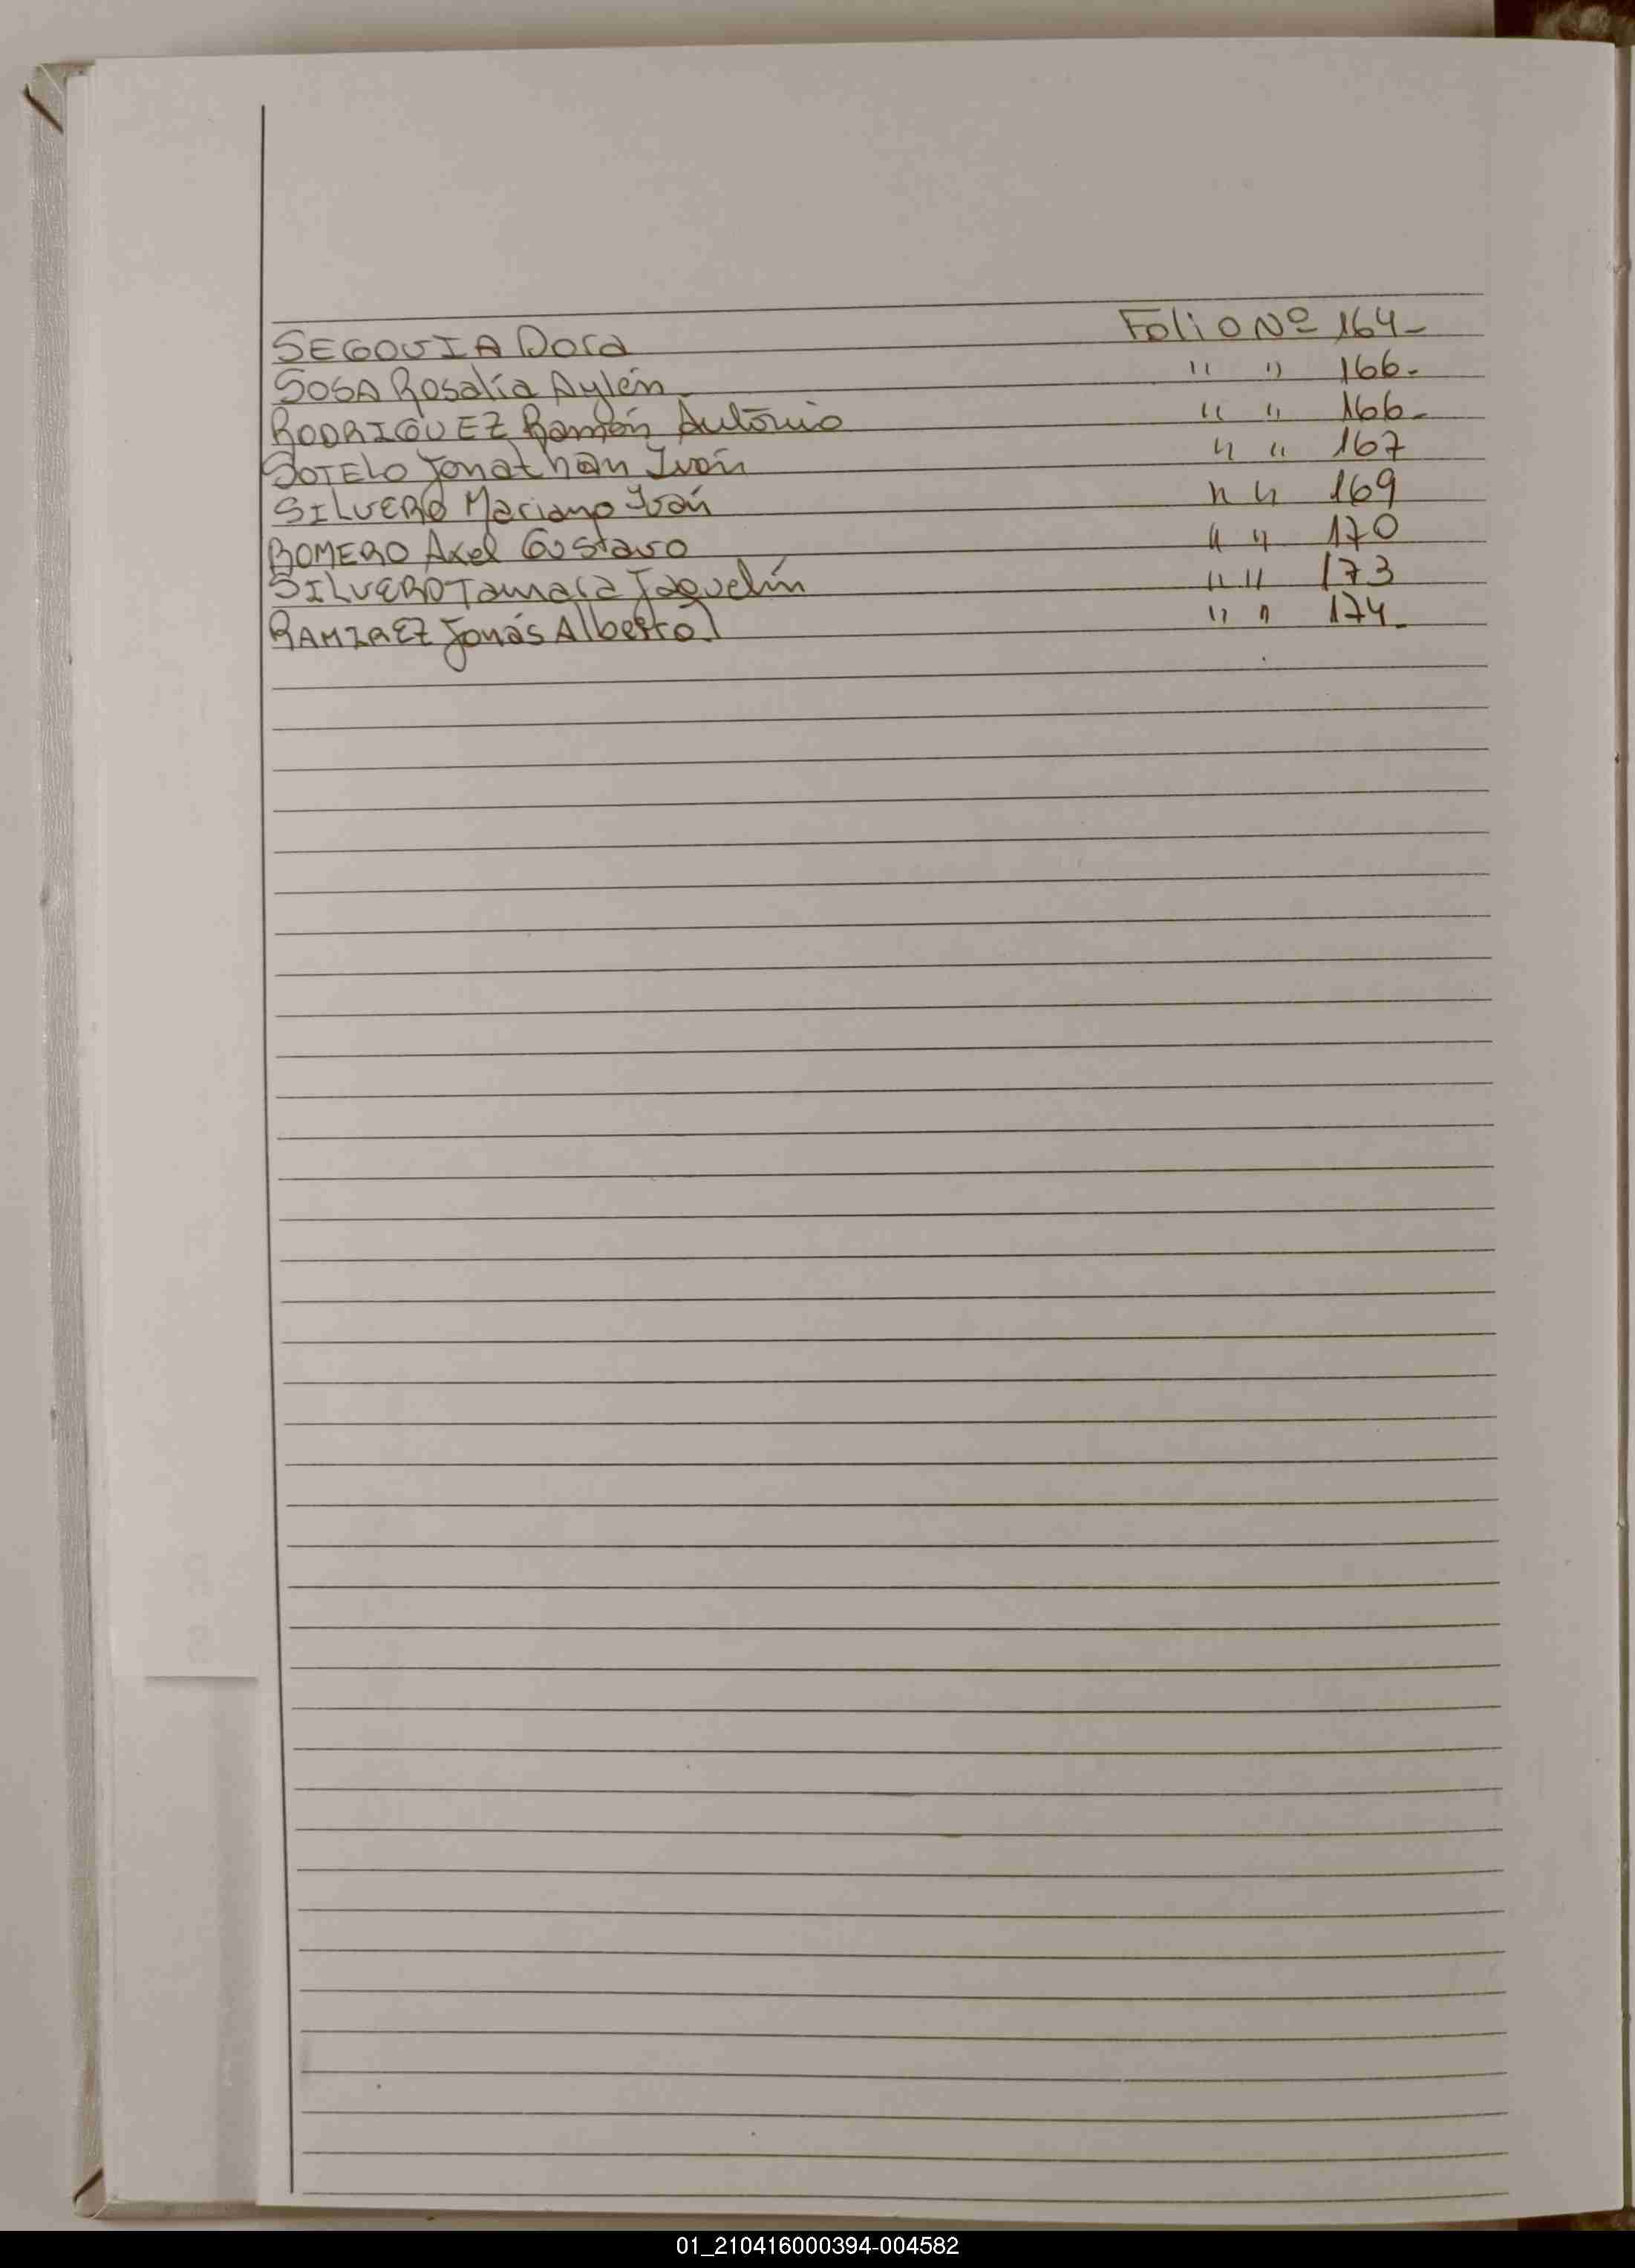 SEGOVIA Dora Folio Nº 164-
SOSA Rosalía Aylén " " 166-
RODRIGUEZ Ramón Antonio " " 166-
SOTELO Jonathan Iván " " 167
SILVERO Mariano Iván " " 169
ROMERO Axel Gustavo " " 170
SILVERO Tamara Jaquelín " " 173
RAMIREZ Jonás Alberto " " 174-
01_210416000394-004582